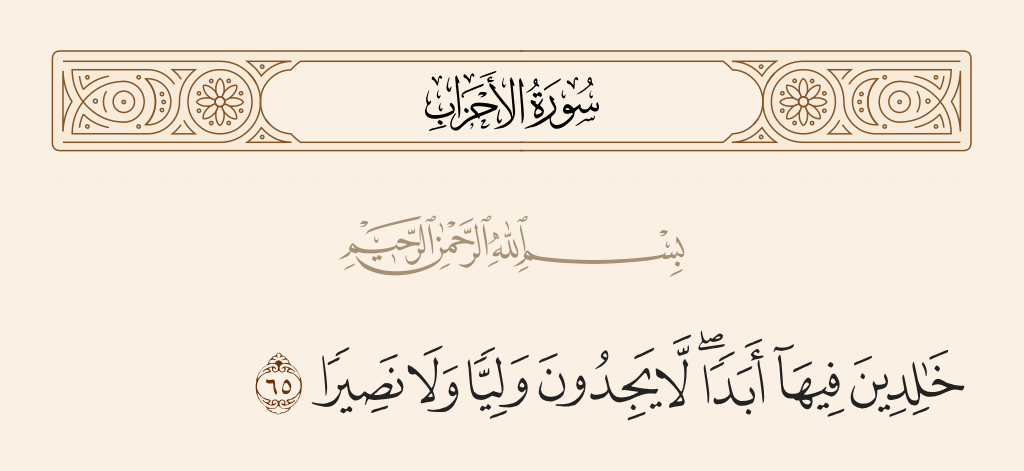 سُورَةُ الأَحْزَابِ
بِسْمِ ٱللَّهِ ٱلرَّحْمَٰنِ ٱلرَّحِيمِ
خَٰلِدِينَ فِيهَآ أَبَدًا ۖ لَّا يَجِدُونَ وَلِيًّا وَلَا نَصِيرًا ٦٥